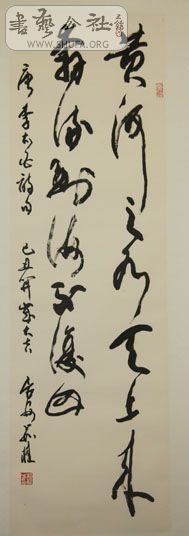 黄河之水天上来
奔流到海不復回
唐李太白詩句
己丑年嵗大吉
書藝公社
WWW.SHUFA.ORG